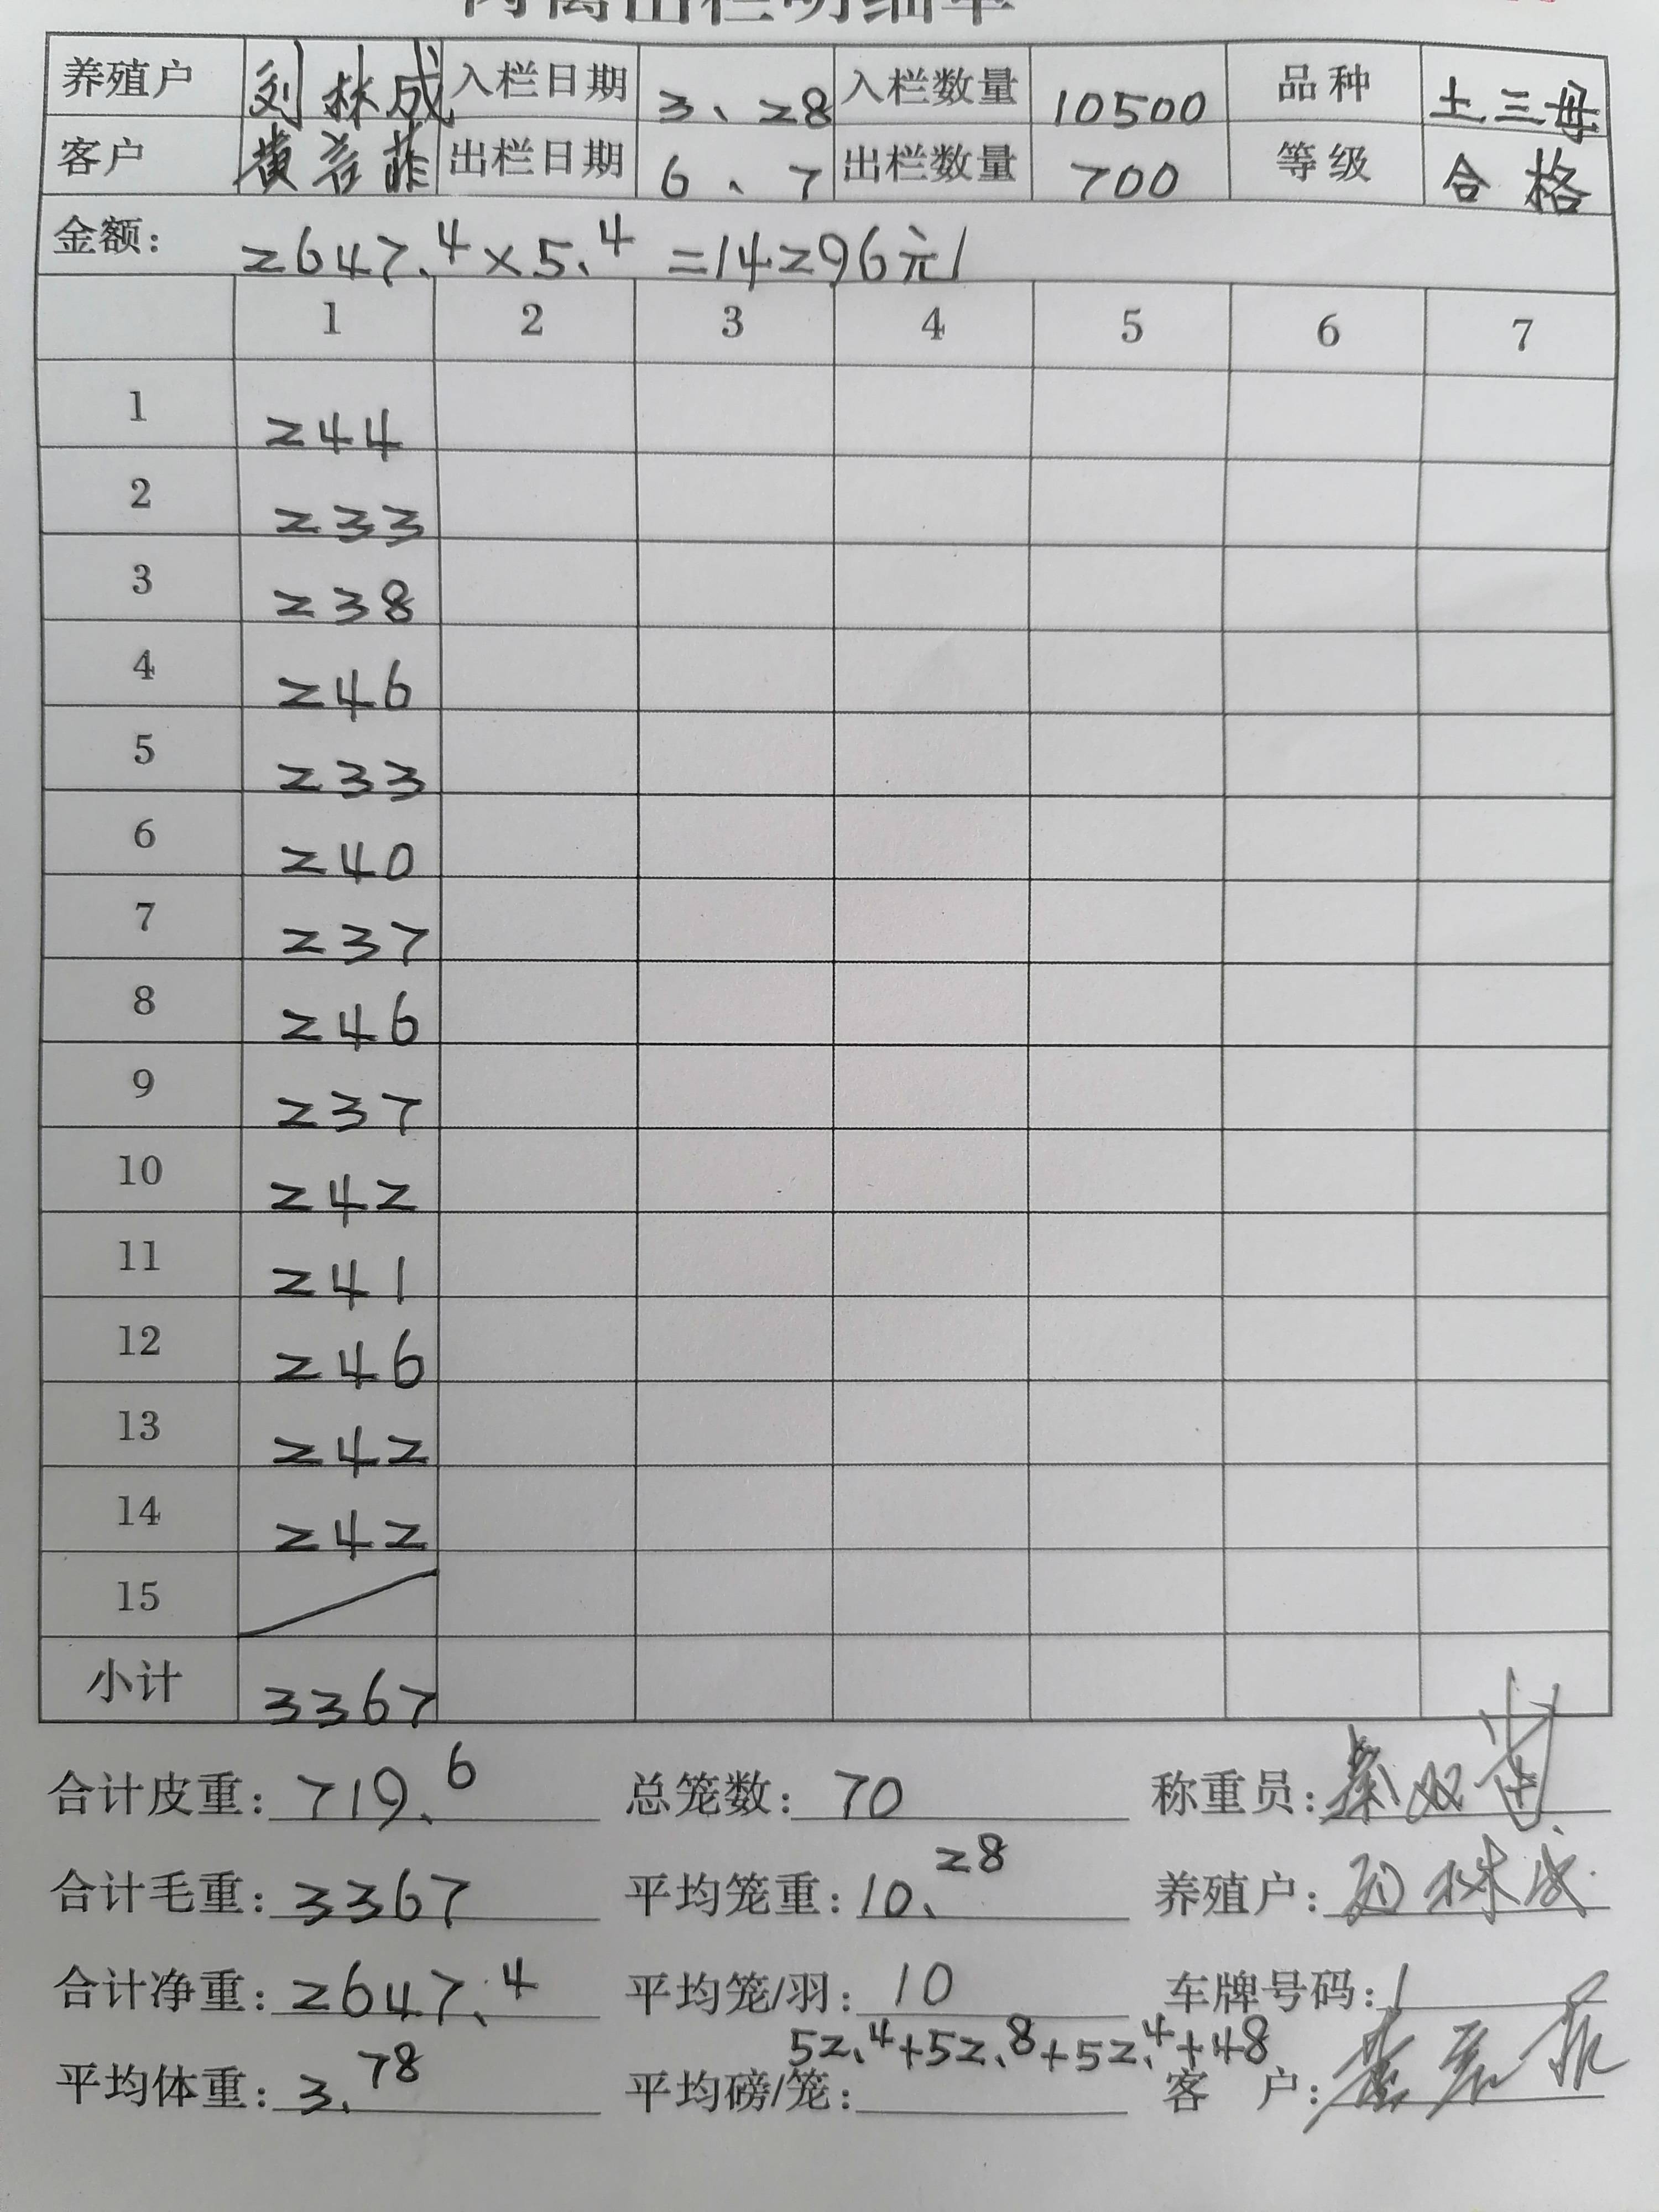 肉禽出栏明细单
养殖户 刘林成 入栏日期 3、28 入栏数量 10500 品种 土三母
客户 黄 菲 出栏日期 6、7 出栏数量 700 等级 合格
金额： 2647.4×5.4=14296元
1 2 3 4 5 6 7
1 244
2 233
3 238
4 246
5 233
6 240
7 237
8 246
9 237
10 242
11 241
12 246
13 242
14 242
15
小计 3367
合计皮重：719.6 总笼数：70 称重员：秦双苗
合计毛重：3367 平均笼重：10.28 养殖户：刘林成
合计净重：2647.4 平均笼/羽：10 车牌号码：
52.4+52.8+52.4+48
平均体重：3.78 平均磅/笼： 客户：黄 菲